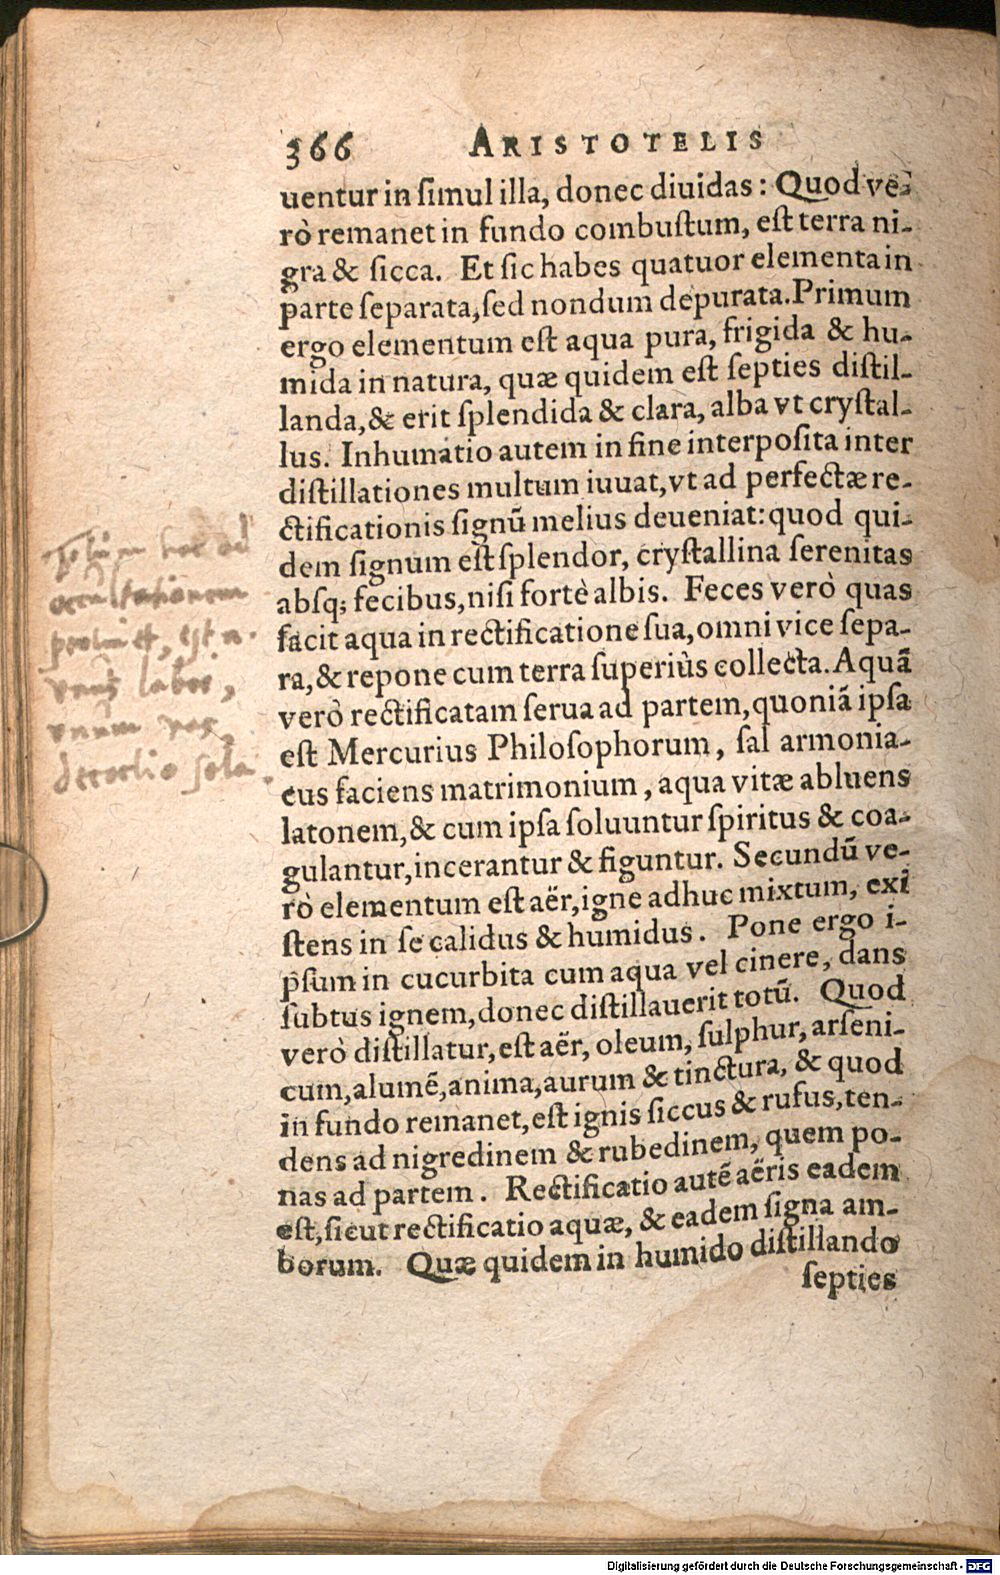 366 ARISTOTELIS
uentur in ſimul illa, donec diuidas: Quod ve-
rò remanet in fundo combuſtum, eſt terra ni-
gra & ſicca. Et ſic habes quatuor elementa in
parte ſeparata, ſed nondum depurata. Primum
ergo elementum eſt aqua pura, frigida & hu-
mida in natura, quæ quidem eſt ſepties diſtil-
landa, & erit ſplendida & clara, alba vt cryſtal-
lus. Inhumatio autem in fine interpoſita inter
diſtillationes multum iuuat, vt ad perfectæ re-
ctificationis ſignũ melius deueniat: quod qui-
dem ſignum eſt ſplendor, cryſtallina ſerenitas
abſq; fecibus, niſi fortè albis. Feces verò quas
facit aqua in rectificatione ſua, omni vice ſepa-
ra, & repone cum terra ſuperiùs collecta. Aquã
verò rectificatam ſerua ad partem, quoniã ipſa
eſt Mercurius Philoſophorum, ſal armonia-
cus faciens matrimonium, aqua vitæ abluens
latonem, & cum ipſa ſoluuntur ſpiritus & coa-
gulantur, incerantur & figuntur. Secundũ ve-
rò elementum eſt aër, igne adhuc mixtum, exi
ſtens in ſe calidus & humidus. Pone ergo i-
pſum in cucurbita cum aqua vel cinere, dans
ſubtus ignem, donec diſtillauerit totũ. Quod
verò diſtillatur, eſt aër, oleum, ſulphur, arſeni-
cum, alumẽ, anima, aurum & tinctura, & quod
in fundo remanet, eſt ignis ſiccus & rufus, ten-
dens ad nigredinem & rubedinem, quem po-
nas ad partem. Rectificatio autẽ aëris eadem
eſt, ſicut rectificatio aquæ, & eadem ſigna am-
borum. Quæ quidem in humido diſtillando
ſepties
hoc ad
occultationem
est
labor,
unum vas,
decoctio sola.
Digitalisierung gefördert durch die Deutsche Forschungsgemeinschaft - DFG